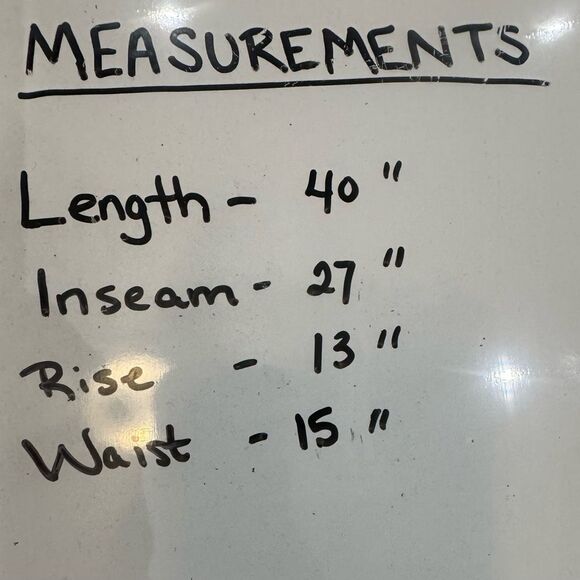 MEASUREMENTS
Length - 40"
Inseam - 27"
Rise - 13"
Waist - 15"